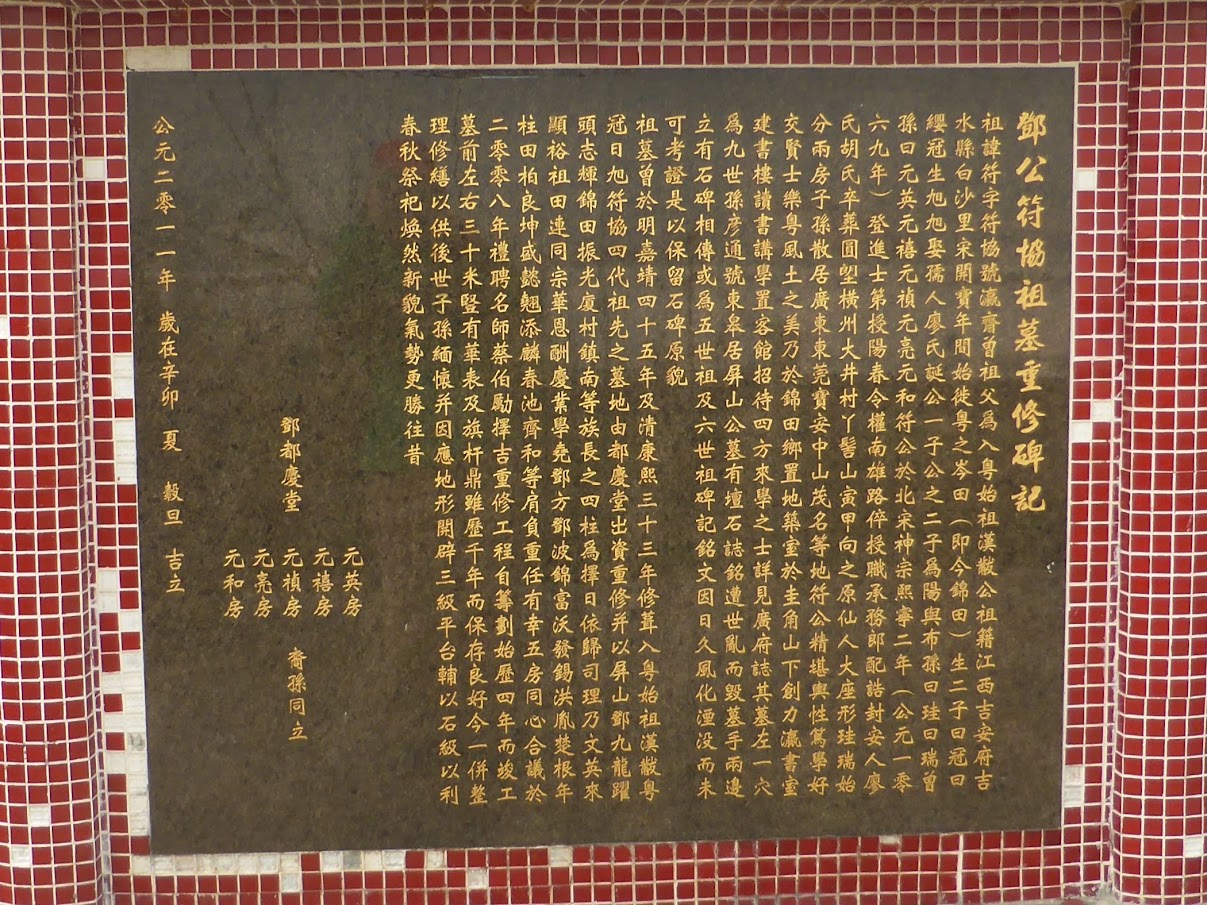 鄧公符協祖墓重修碑記
祖諱符字符協號瀛齋曾祖父為入粵始祖漢黻公祖籍江西吉安府吉
水縣白沙里宋開寶年間始徙粵之岑田（即今錦田）生二子曰冠曰
纓冠生旭旭娶孺人廖氏誕公一子公之二子為陽與布孫曰珪曰瑞曾
孫曰元英元禧元禎元亮元和符公於北宋神宗熙寧二年（公元一零
六九年）登進士第授陽春令權南雄路倅授職承務郎配誥封安人廖
氏胡氏卒葬圓塱橫州大井村丫髻山寅甲向之原仙人大座形珪瑞始
分兩房子孫散居廣東東莞寶安中山茂名等地符公精堪輿性篤學好
交賢士樂粵風土之美乃於錦田鄉置地築室於圭角山下創力瀛書室
建書樓讀書講學置客館招待四方來學之士詳見廣府誌其墓左一穴
為九世孫彥通號東皋居屏山公墓有壇石誌銘遭世亂而毀墓手兩邊
立有石碑相傳或為五世祖及六世祖碑記銘文因日久風化湮没而未
可考證是以保留石碑原貌
祖墓曾於明嘉靖四十五年及清康熙三十三年修葺入粵始祖漢黻粵
冠日旭符協四代祖先之墓地由都慶堂出資重修并以屏山鄧九龍躍
頭志輝錦田振光廈村鎮南等族長之四柱為擇日依歸司理乃文英來
顯裕祖田連同宗華恩酬慶業學堯鄧方鄧波錦富沃發錫洪胤楚根年
柱田柏良坤盛懿翹添麟春池齊和等肩負重任有幸五房同心合議於
二零零八年禮聘名師蔡伯勵擇吉重修工程自籌劃始歷四年而竣工
墓前左右三十米豎有華表及旗杆鼎雖歷千年而保存良好今一併整
理修繕以供後世子孫緬懷并因應地形開辟三級平台輔以石級以利
春秋祭祀煥然新貌氣勢更勝往昔
元英房
元禧房
鄧都慶堂 元禎房 裔孫同立
元亮房
元和房
公元二零一一年 歲在辛卯 夏 穀旦 吉立